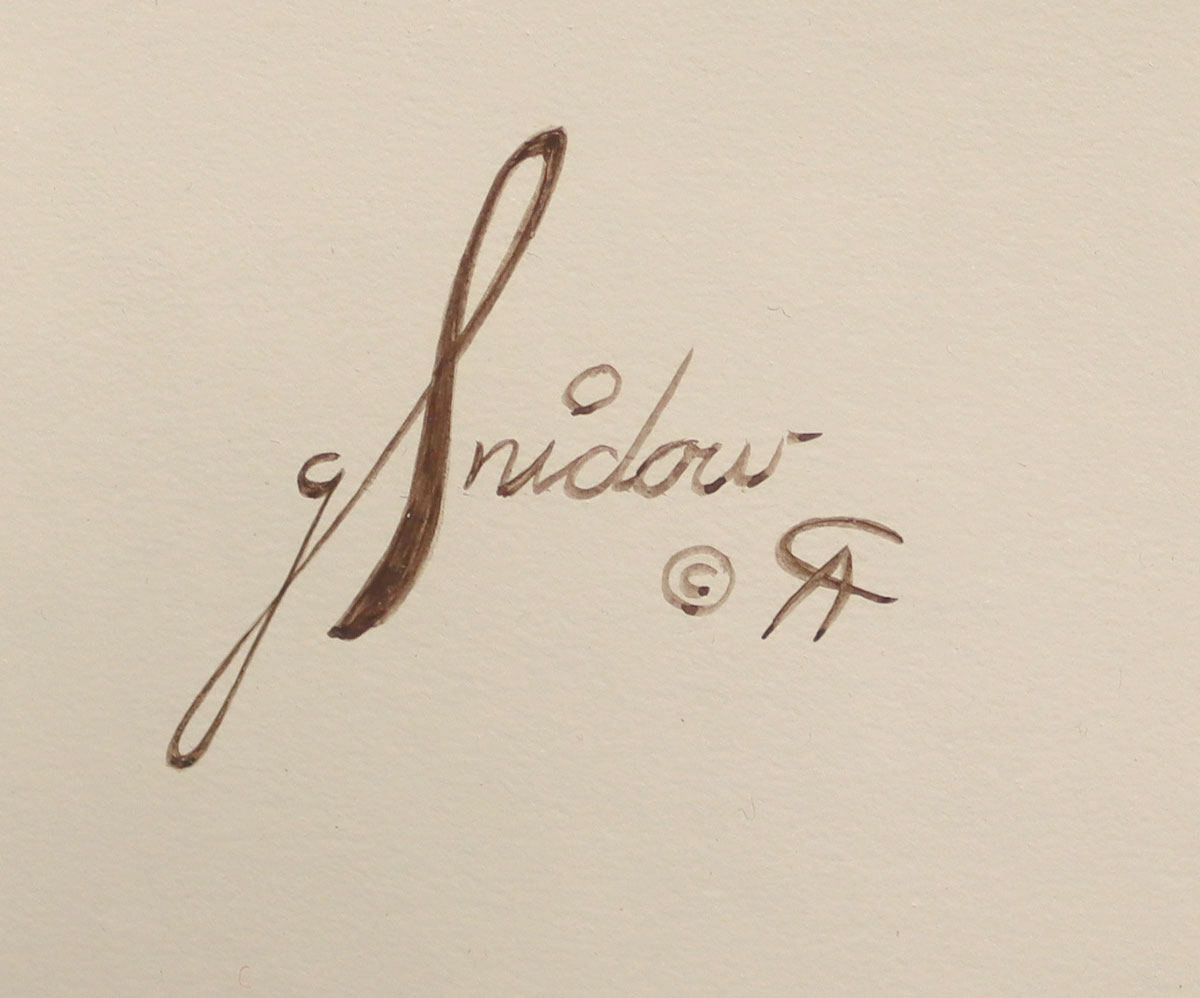 g Snidow
© CA